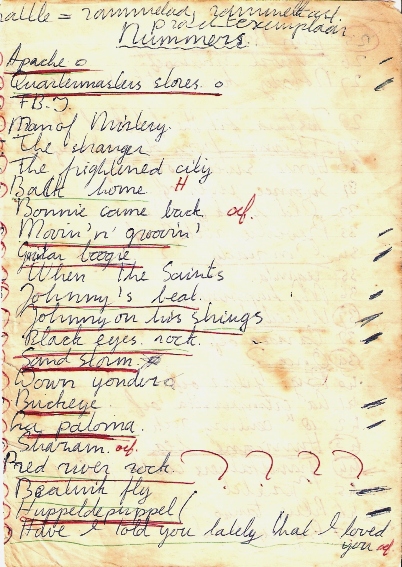 = rammelad, rammelkast.
praal exemplaar
Nummers.
Apache o
Quartermasters stores. o
F.B.I
Man of Mistery.
The stranger
The frightened city
Back home H
Bonnie came back. oef.
Movin' n' groovin'
Guitar boogie
When The Saints
Johnny's beat.
Johnny on his Shings
Black eyes rock.
Sand storm
Down yonder o
Buckeye.
La paloma.
Shazam. oef.
Red river rock. ? ? ? ?
Beatnik fly
Huppeldepuppel!
Have I told you lately that I loved
you oef